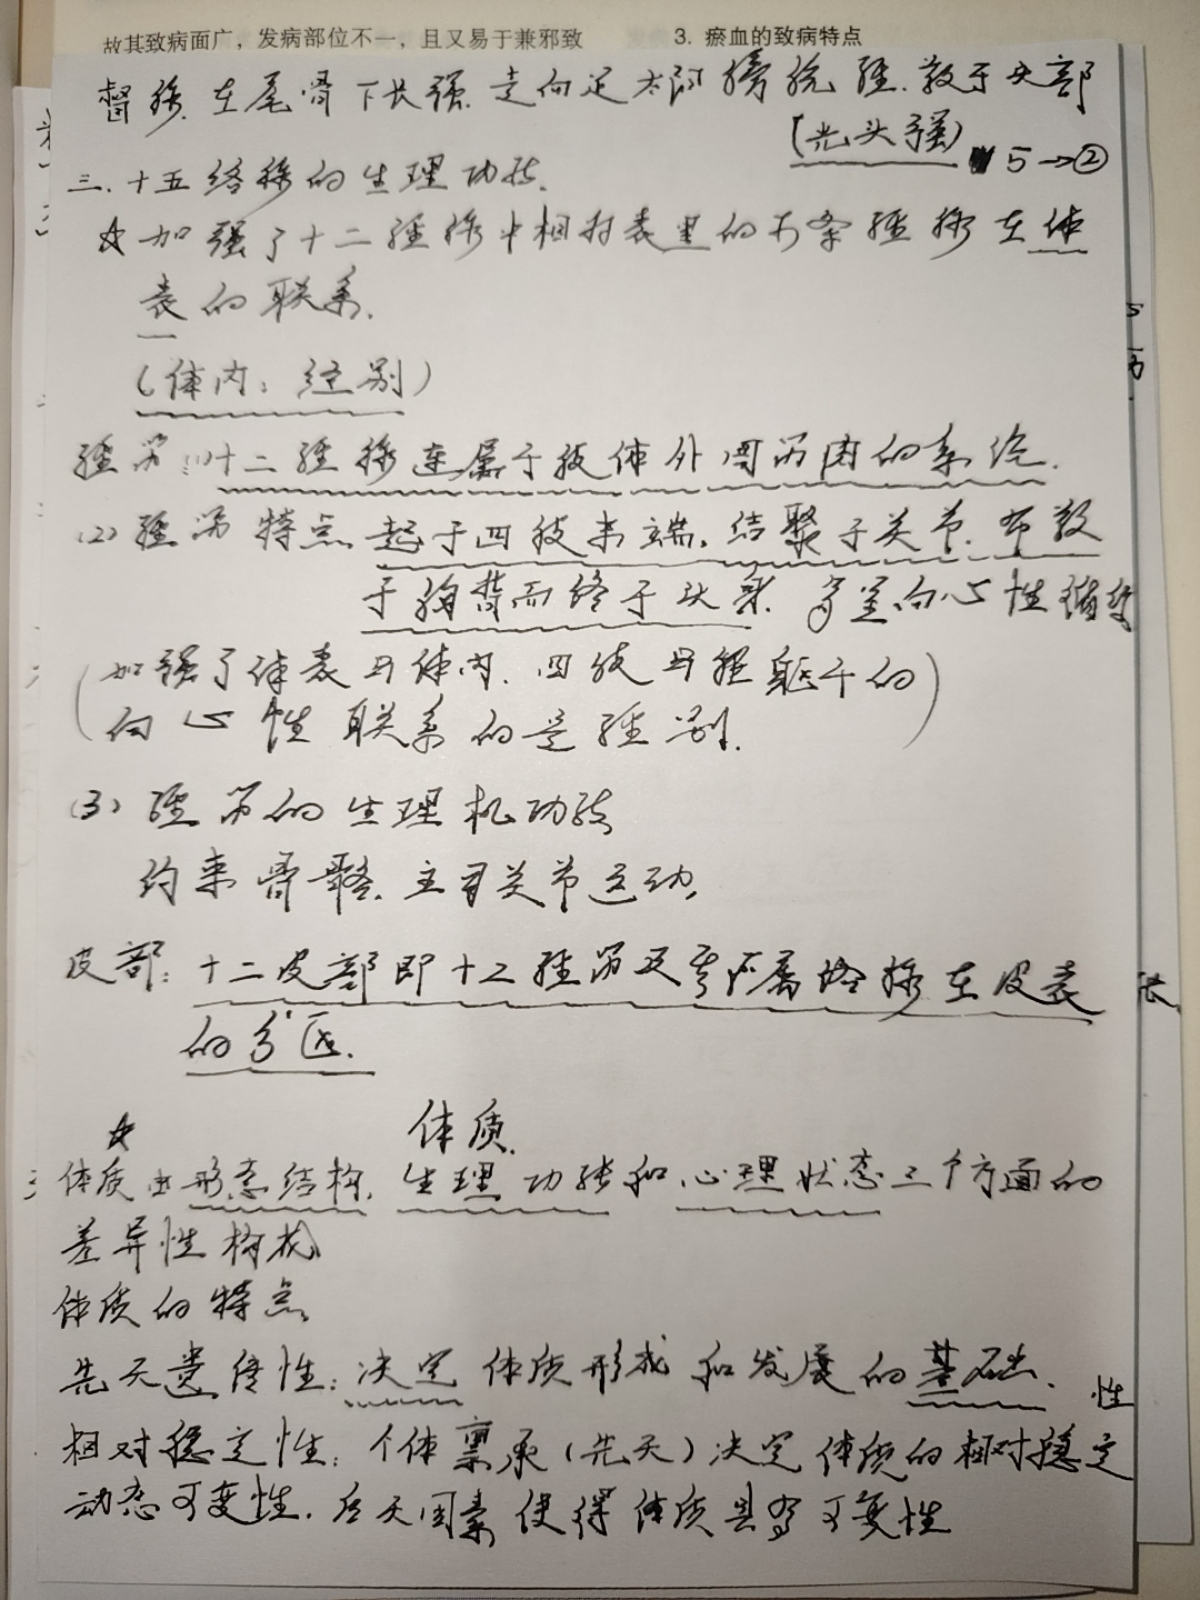 故其致病面广，发病部位不一，且又易于兼邪致
3. 瘀血的致病特点
督络. 在尾骨下长强. 走向足太阳膀胱经. 散于头部
(光头强) 5→②
三. 十五络络的生理功能.
☆加强了十二经络中相对表里的两条经络在体
表的联系.
(体内: 经别)
经筋 (1)十二经络连属于肢体外周筋肉的系统.
(2) 经筋特点 起于四肢末端. 结聚于关节. 布散
于胸背而终于头身. 多呈向心性循行
(加强了体表与体内. 四肢与躯干的
向心性联系的是经别.)
(3) 经筋的生理机功能
约束骨骼. 主司关节运动.
皮部: 十二皮部即十二经筋及其所属络络在皮表
的分区.
☆ 体质.
体质由形态结构. 生理功能和心理状态三个方面的
差异性构成
体质的特点
先天遗传性: 决定体质形成和发展的基础.
性
相对稳定性: 个体禀承(先天)决定体质的相对稳定
动态可变性. 后天因素使得体质具有可变性